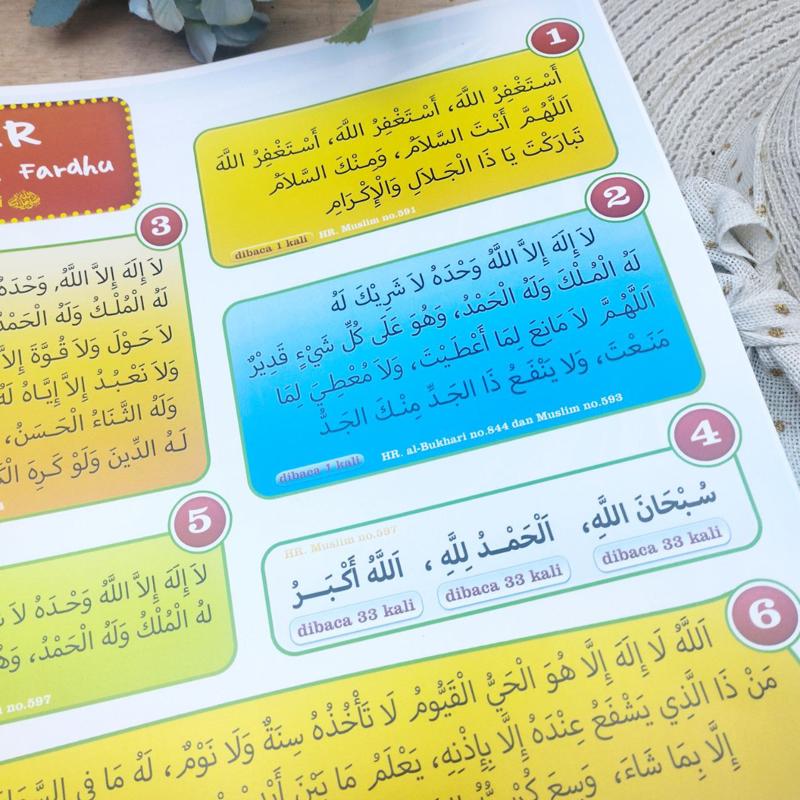 Fardhu
1
أَسْتَغْفِرُ اللَّهَ، أَسْتَغْفِرُ اللَّهَ، أَسْتَغْفِرُ اللَّهَ
اَللَّهُمَّ أَنْتَ السَّلاَمُ، وَمِنْكَ السَّلاَمُ
تَبَارَكْتَ يَا ذَا الْجَلاَلِ وَالْإِكْرَامِ
dibaca 1 kali
HR. Muslim no.591
2
لاَ إِلَهَ إِلاَّ اللَّهُ وَحْدَهُ لاَ شَرِيْكَ لَهُ
لَهُ الْمُلْكُ وَلَهُ الْحَمْدُ، وَهُوَ عَلَى كُلِّ شَيْءٍ قَدِيْرٌ
اَللَّهُمَّ لاَ مَانِعَ لِمَا أَعْطَيْتَ، وَلاَ مُعْطِيَ لِمَا
مَنَعْتَ، وَلا يَنْفَعُ ذَا الْجَدِّ مِنْكَ الْجَدُّ
dibaca 1 kali
HR. al-Bukhari no.844 dan Muslim no.593
3
لاَ إِلَهَ إِلاَّ اللَّهُ، وَحْدَهُ
لَهُ الْمُلْكُ وَلَهُ الْحَمْدُ
لاَ حَوْلَ وَلاَ قُوَّةَ إِلاَّ
وَلاَ نَعْبُدُ إِلاَّ إِيَّاهُ لَهُ
وَلَهُ الثَّنَاءُ الْحَسَنُ،
لَهُ الدِّينَ وَلَوْ كَرِهَ
4
سُبْحَانَ اللَّهِ، اَلْحَمْدُ لِلَّهِ ، اَللَّهُ أَكْبَرُ
HR. Muslim no.597
dibaca 33 kali
dibaca 33 kali
dibaca 33 kali
5
لاَ إِلَهَ إِلاَّ اللَّهُ وَحْدَهُ لاَ
لَهُ الْمُلْكُ وَلَهُ الْحَمْدُ،
no.597
6
اَللَّهُ لَا إِلَهَ إِلَّا هُوَ الْحَيُّ الْقَيُّومُ لَا تَأْخُذُهُ سِنَةٌ وَلَا نَوْمٌ، لَهُ مَا فِي
مَنْ ذَا الَّذِي يَشْفَعُ عِنْدَهُ إِلَّا بِإِذْنِهِ، يَعْلَمُ مَا بَيْنَ
إِلَّا بِمَا شَاءَ، وَسِعَ